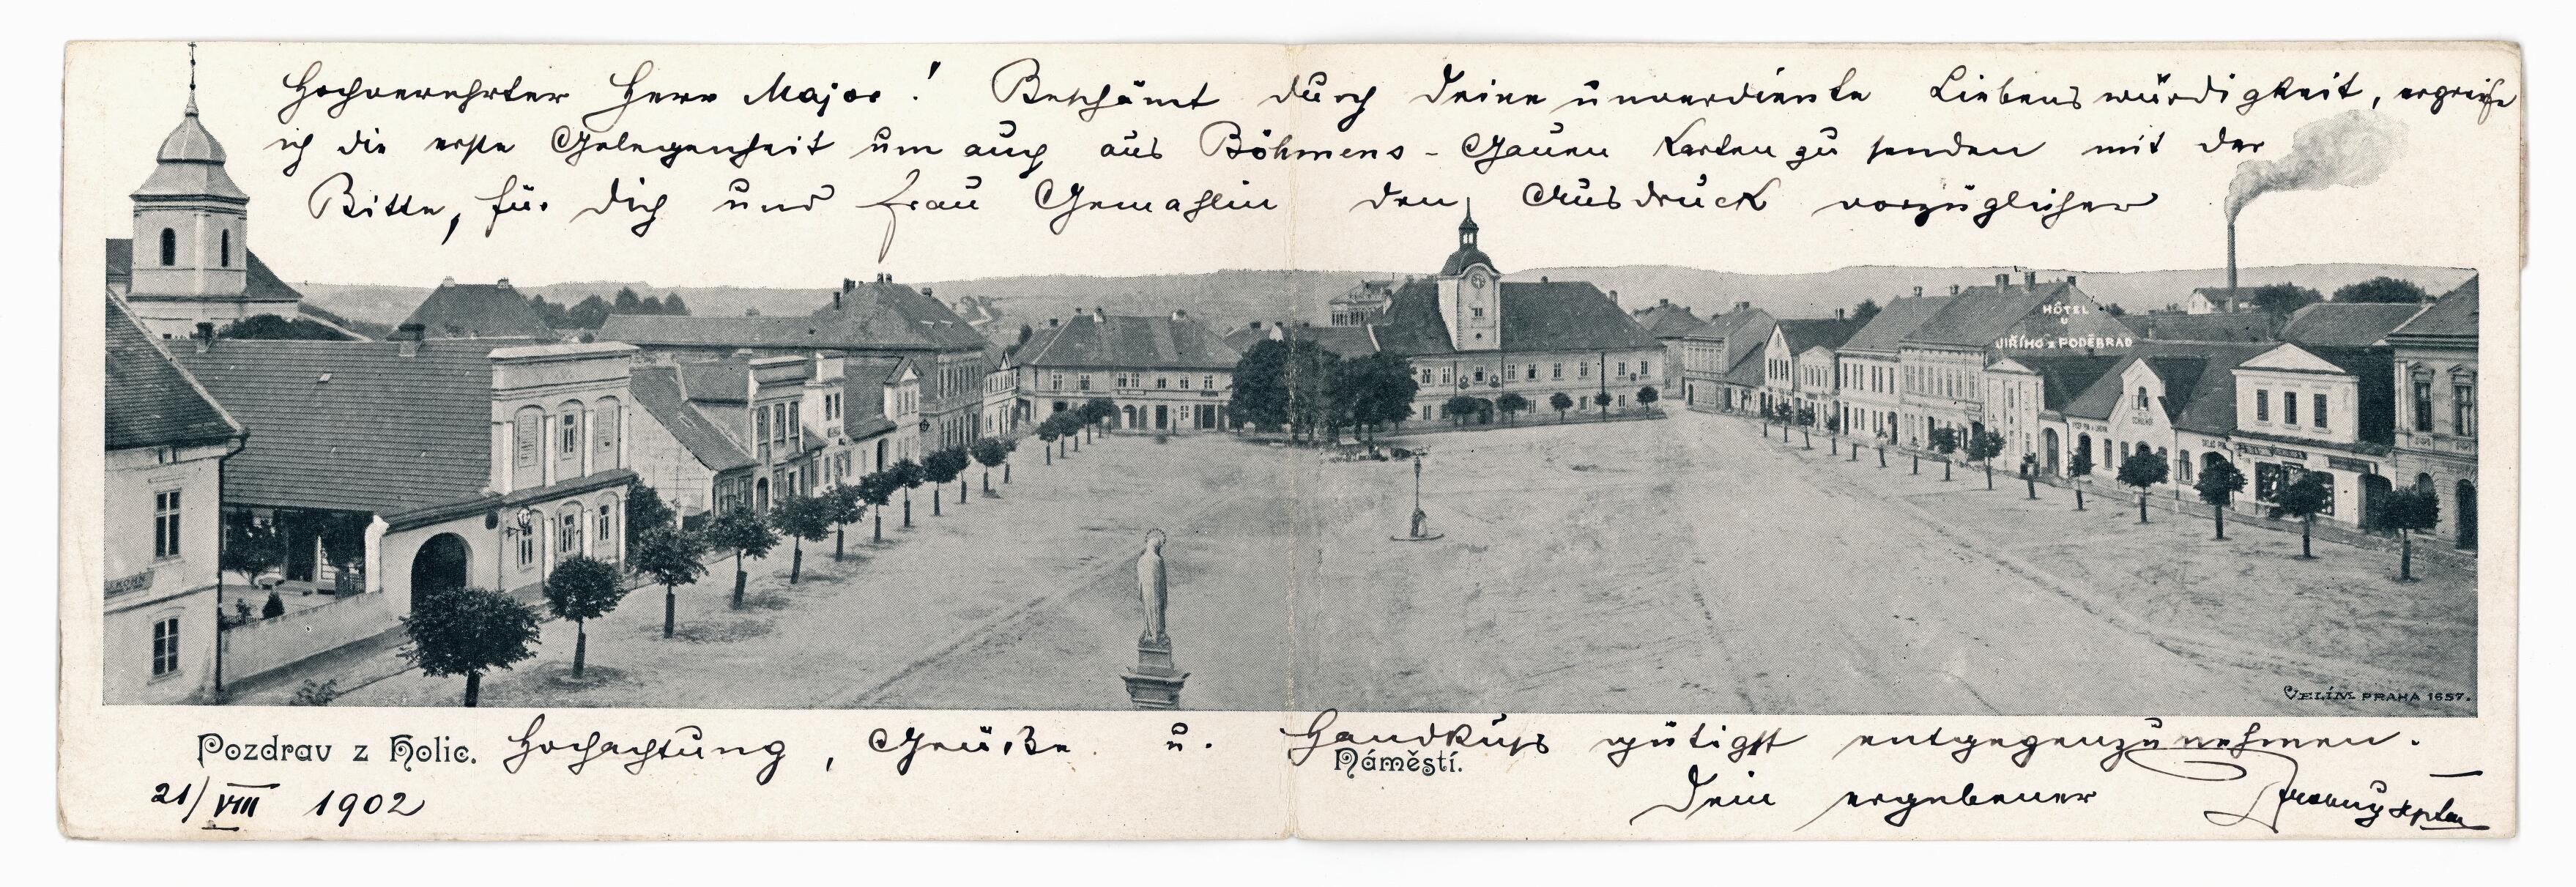 Hochverehrter Herr Major! Beschämt durch Deine unverdiente Liebenswürdigkeit, ergreife
ich die erste Gelegenheit um auch aus Böhmens - Gauen Karten zu senden mit der
Bitte, für Dich und Frau Gemahlin den Ausdruck vorzüglicher
HÔTEL
U
JIŘÍHO z PODĚBRAD
KOHN
VELÍM PRAHA 1657.
Pozdrav z Holic. Hochachtung, Grüße u. Handkuss gütigst entgegenzunehmen.
Náměstí.
21/VIII 1902 Dein ergebener